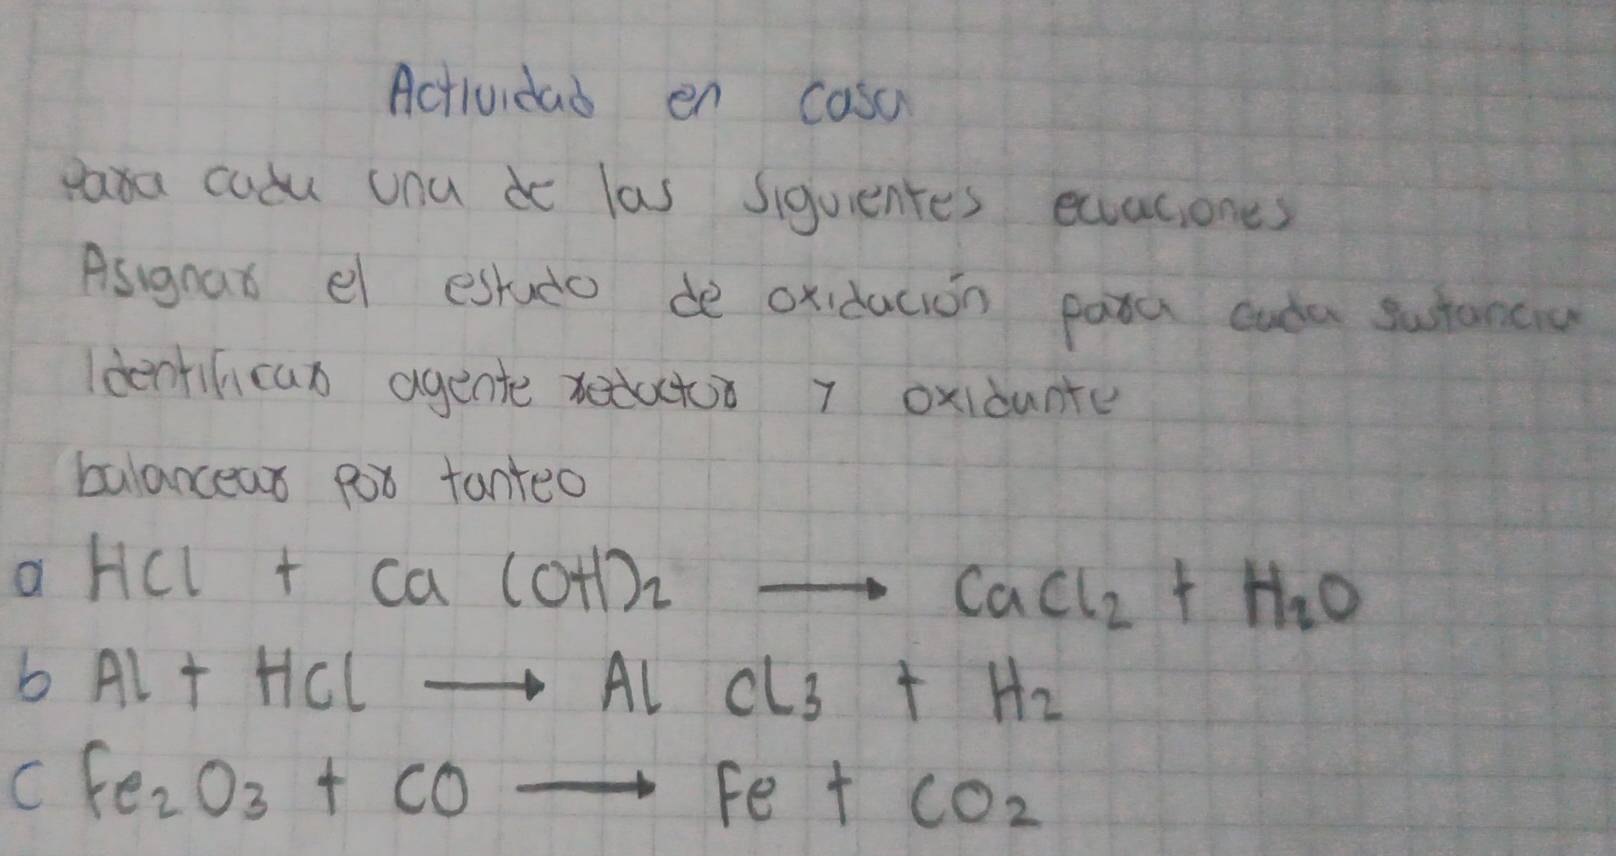 Actividad en casa
Para cada una de las siguientes ecuaciones
Asignar el estado de oxidación para cada sustancia
Identificar agente reductor y oxidante
balancear por tanteo
a HCl + Ca (OH)2 → CaCl2 + H2O
b Al + HCl → Al Cl3 + H2
c Fe2O3 + CO → Fe + CO2